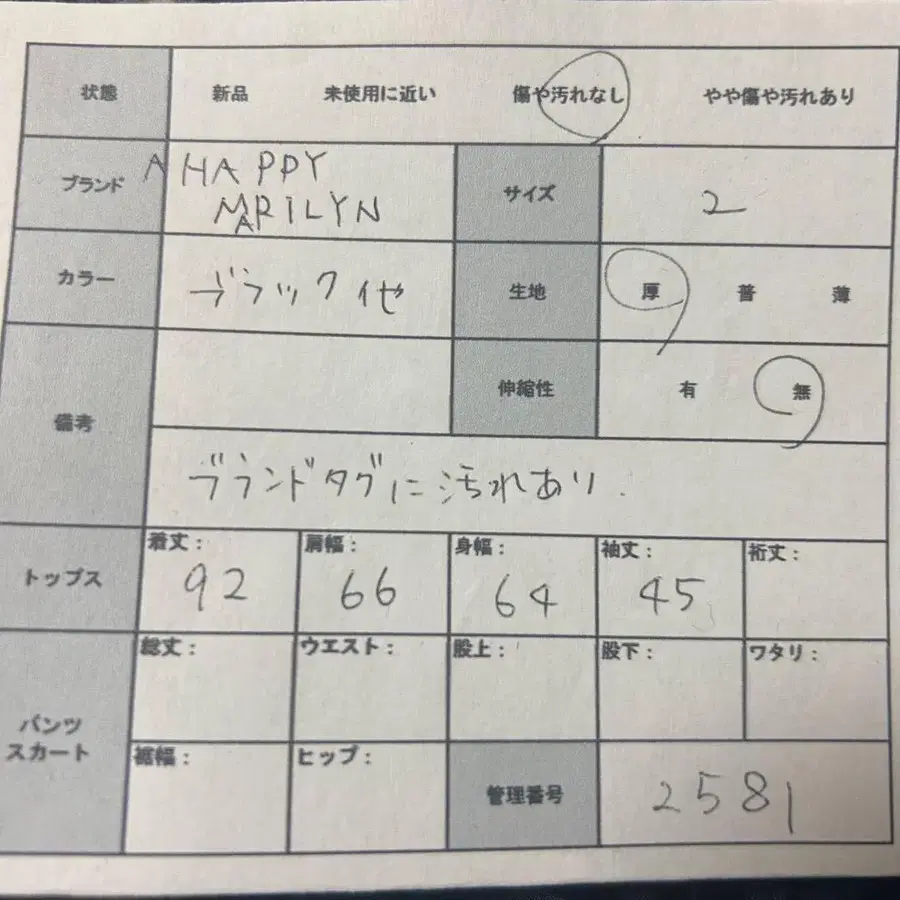 状態 新品 未使用に近い 傷や汚れなし やや傷や汚れあり
ブランド A HAPPY
MARILYN
サイズ 2
カラー ブラック他
生地 厚 普 薄
伸縮性 有 無
備考
ブランドタグに汚れあり.
トップス 着丈: 92 肩幅: 66 身幅: 64 袖丈: 45 裄丈:
パンツ
スカート
総丈: ウエスト: 股上: 股下: ワタリ:
裾幅: ヒップ: 管理番号 2581